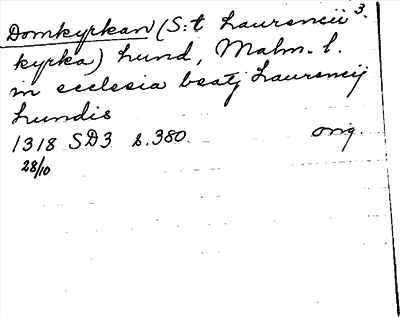 Domkyrkan (S:t Laurencii 3.
kyrka) Lund, Malm. l.
in ecclesia beatj Laurencij
Lundis
1318 SD3 s.380. orig.
28/10